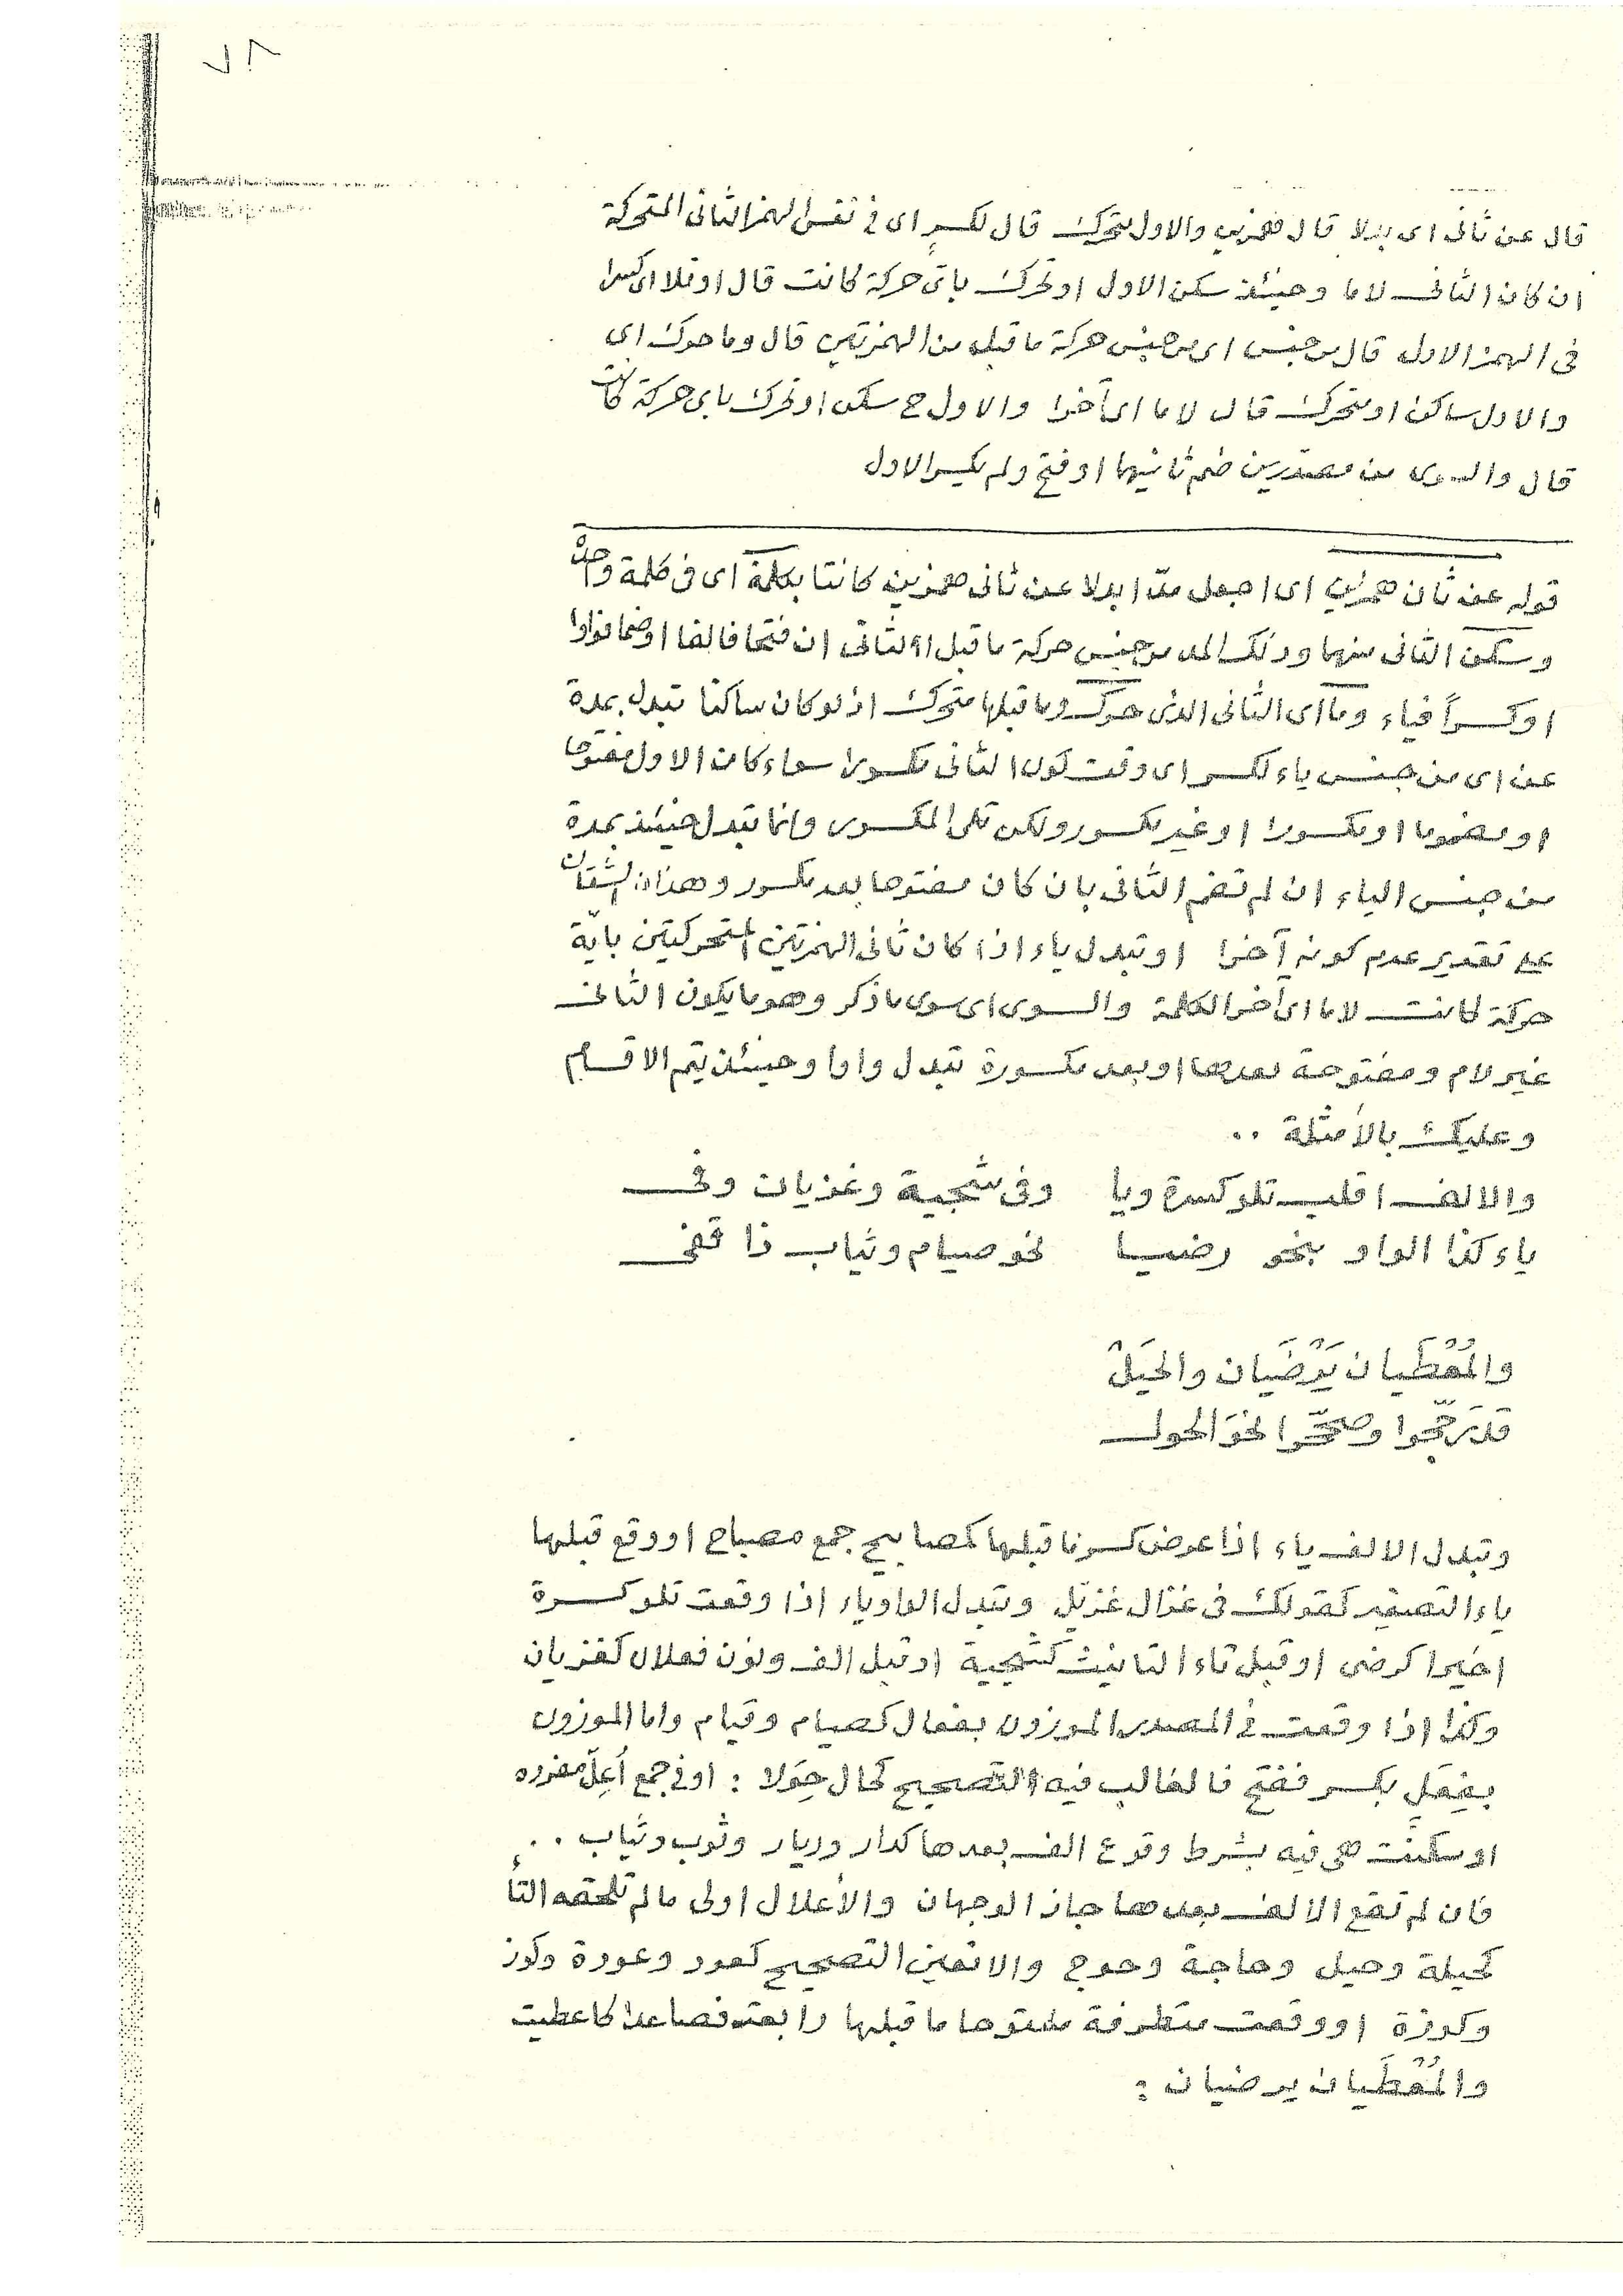 ٧٨
قال عن ثانى اى بدلا قال همزين والاول متحرك قال لكسر اى فى نفس الهمز الثانى المتحركة
ان كان الثانى لاما وحينئذ سكن الاول او تحرك باى حركة كانت قال او تلا اى كسرا
فى الهمز الاول قال من جنس اى من جنس حركة ما قبل من الهمزتين قال وما حرك اى
والاول ساكن او متحرك قال لاما اى آخرا والاول ح سكن او تحرك باى حركة كانت
قال والسوى من مصدرين ضم ثانيهما او فتح ولم يكسر الاول
قوله عن ثان همزين اى اجعل مدّا بدلا عن ثانى همزين كانتا بكلمة اى فى كلمة واحدة
وسكن الثانى منهما وذلك المد من جنس حركة ما قبل الثانى ان فتحا فالفا او ضما فواوا
او كسراً فياء وما اى الثانى الذى حرك وما قبلها متحرك اذ لو كان ساكنا تبدل بمدة
عن اى من جنس ياء لكسر اى وقت كون الثانى مكسورا سواء كان الاول مفتوحا
او مضموما او مكسورا او غير مكسور ولكن تلى المكسور وانما تبدل حينئذ بمدة
من جنس الياء ان لم تضم الثانى بان كان مفتوحا بعد مكسور وهذان الشقان
على تقدير عدم كونه آخرا او تبدل ياء اذا كان ثانى الهمزتين المتحركتين باية
حركة كانت لاما اى آخر الكلمة والسوى اى سوى ما ذكر وهو ما يكون الثانى
غير لام ومفتوحة بعدها او بعد مكسورة تبدل واوا وحينئذ يتم الاقسام
وعليك بالأمثلة ..
والالف اقلب تلو كسرة ويا وفى شجية وغزيان وفى
ياء كذا الواو بنحو رضيا نحو صيام وثياب ذا قفى
والمُعْطَيان يَرْضَيان والحِيَلْ
قد رَجّحوا وصحّحوا نحوَ الحول
وتبدل الالف ياء اذا عرض كسر ما قبلها كمصابيح جمع مصباح او وقع قبلها
ياء التصغير كقولك فى غزال غزيّل وتبدل الواو ياء اذا وقعت تلو كسرة
اخيرا كرضى او قبل تاء التانيث كشجية او قبل الف ونون فعلان كغزيان
وكذا اذا وقعت فى المصدر الموزون بفعال كصيام وقيام واما الموزون
بفِعَلٍ بكسر ففتح فالغالب فيه التصحيح كحال حِوَلا : او فى جمع أُعِلّ مفرده
او سكنَت هى فيه بشرط وقوع الف بعدها كدار وديار وثوب وثياب ..
فان لم تقع الالف بعدها جاز الوجهان والأعلال اولى ما لم تلحقه التأ
كحيلة وحيل وحاجة وحوج والا تعين التصحيح كعود وعودة وكوز
وكوزة او وقعت متطرفة مفتوحا ما قبلها رابعة فصاعدا كاعطيت
والمُعْطَيان يرضيان :